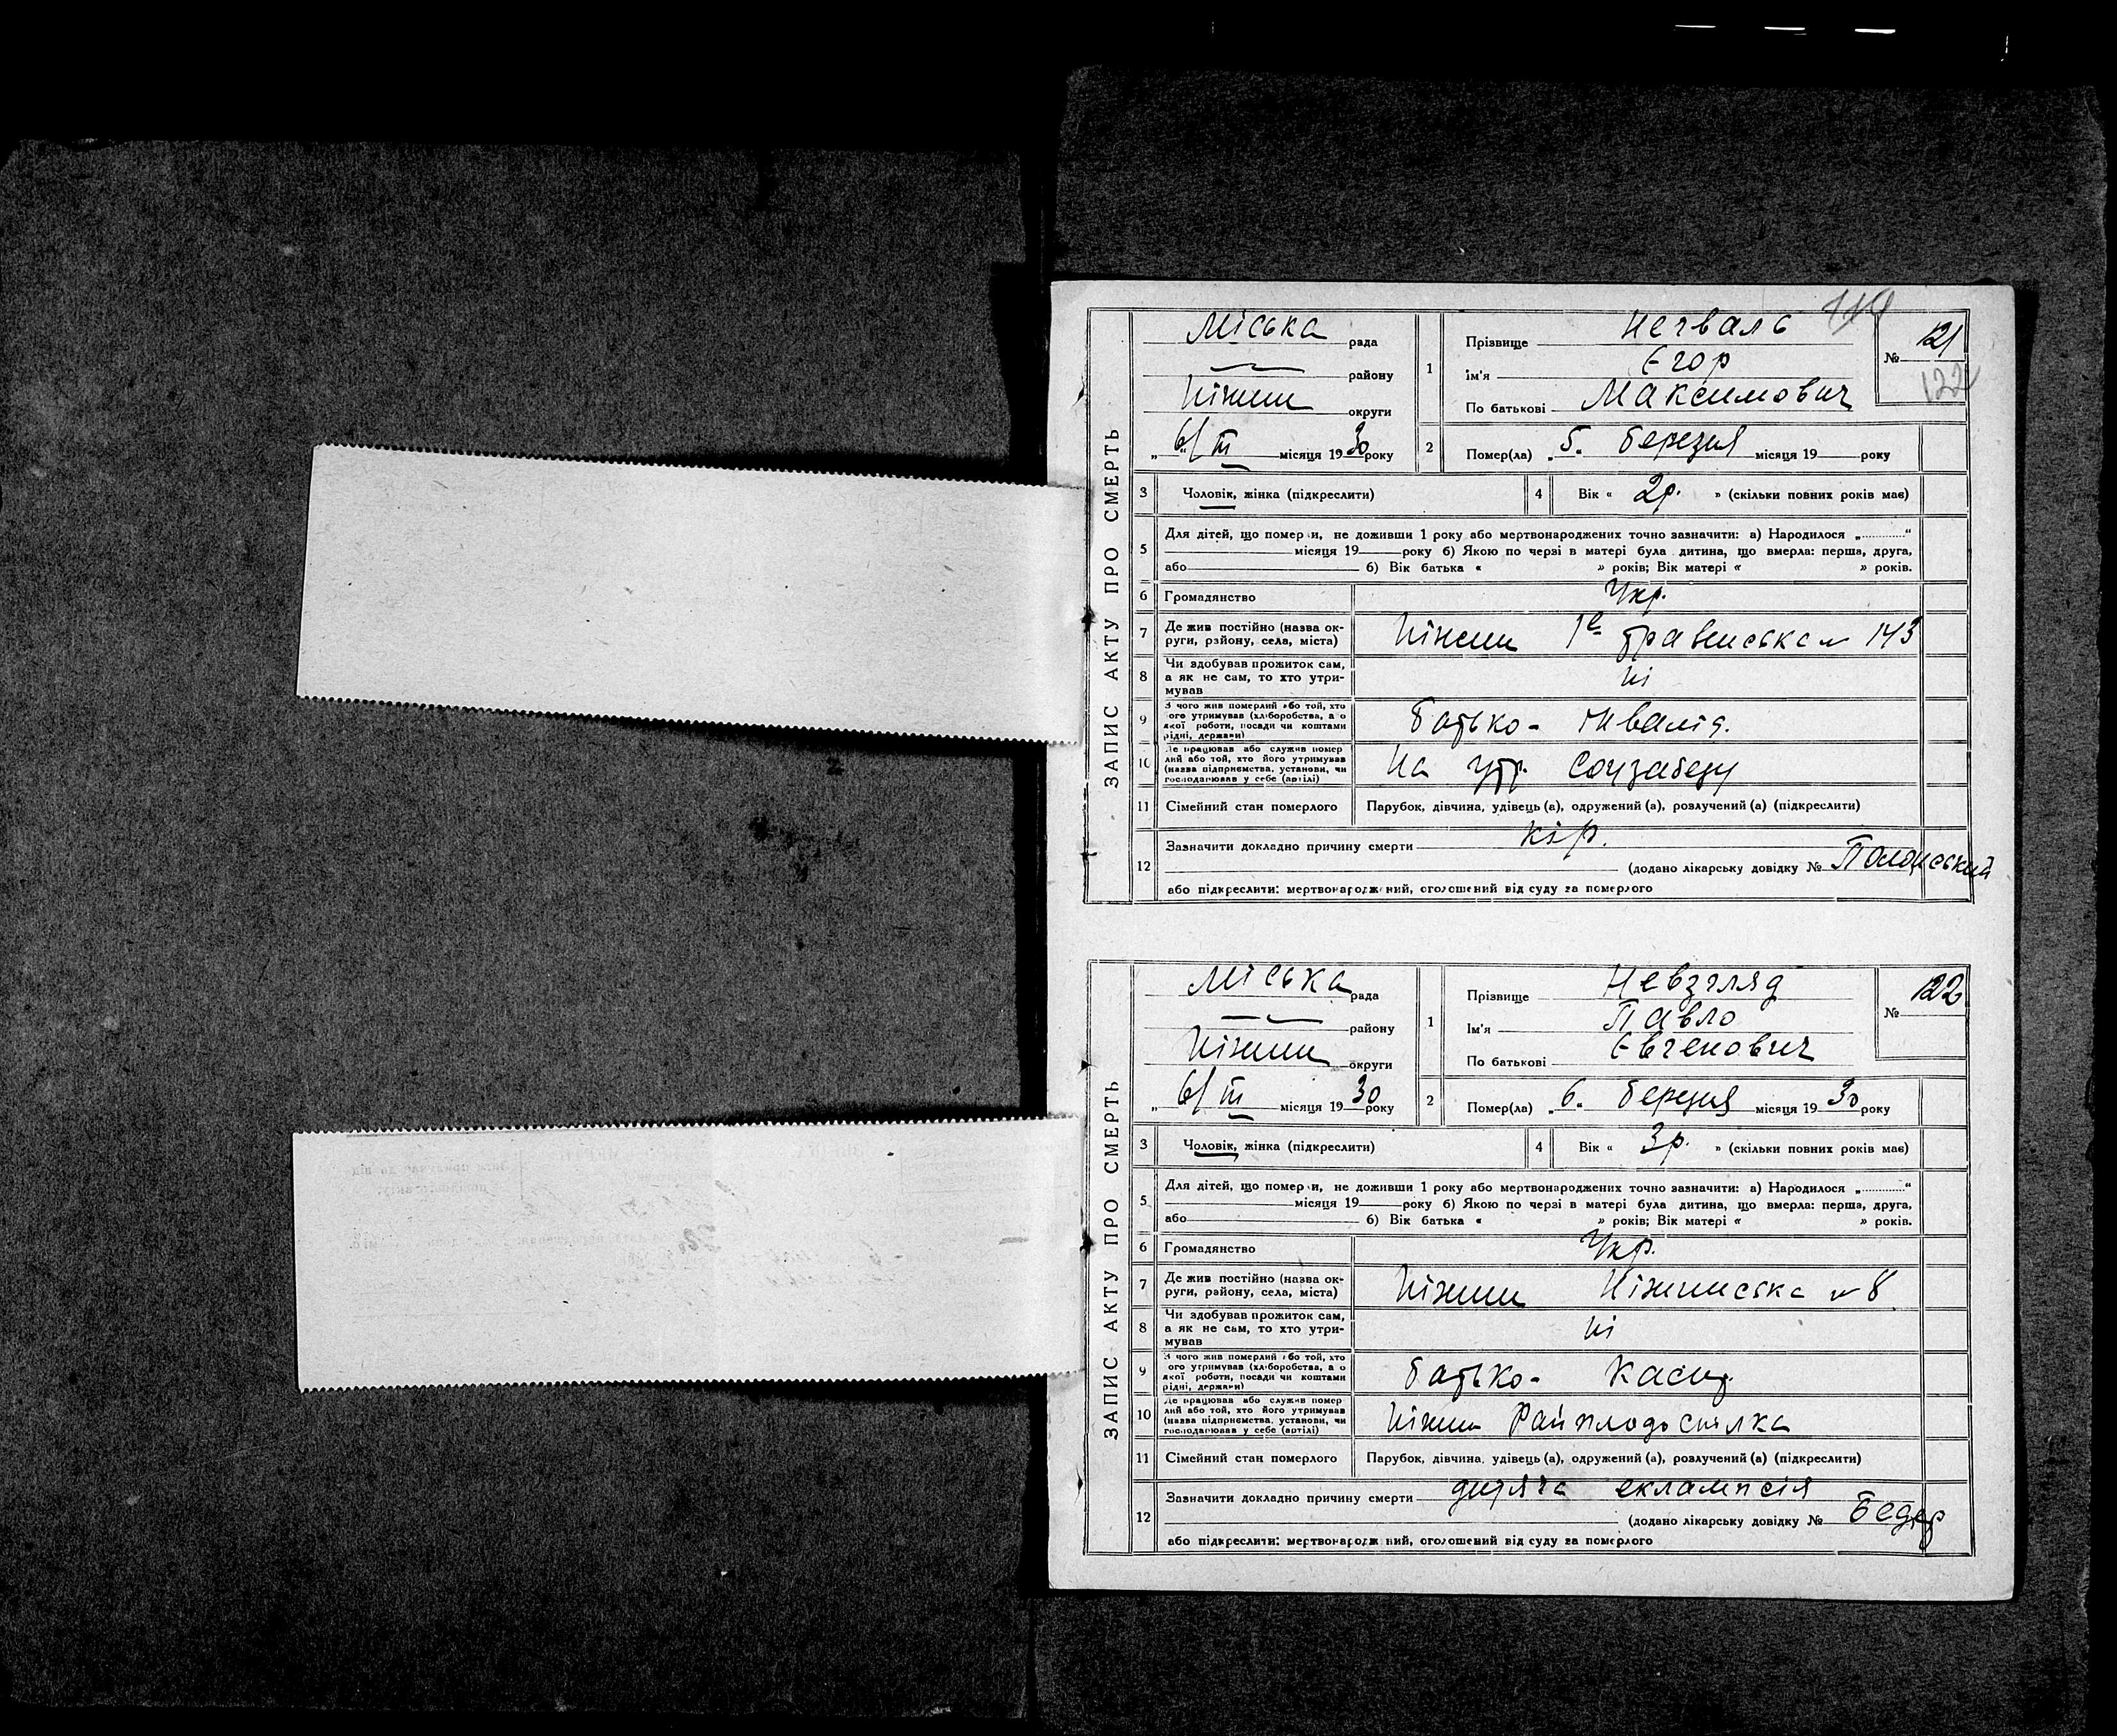 ЗАПИС АКТУ ПРО СМЕРТЬ
Міська рада
району
Ніжин округи
„6/ III місяця 1930 року
1 Прізвище Негваль
Ім'я Єгор
По батькові Максимович
№ 121
122
2 Помер(ла) „5“ березня місяця 19 року
3 Чоловік, жінка (підкреслити)
4 Вік « 2р. » (скільки повних років має)
5 Для дітей, що померли, не доживши 1 року або мертвонароджених точно зазначити: а) Народилося „..........“
місяця 19 року б) Якою по черзі в матері була дитина, що вмерла: перша, друга,
або б) Вік батька « » років; Вік матері « » років.
6 Громадянство Укр.
7 Де жив постійно (назва округи, району, села, міста) Ніжин 143
8 Чи здобував прожиток сам, а як не сам, то хто утримував Ні
9 З чого жив померлий або той, хто його утримував (хліборобства, або якої роботи, посади чи коштами рідні, держави) Батько - інвалід.
10 Де працював або служив померлий або той, хто його утримував (назва підприємства, установи, чи господарював у себе (артілі) На утр. Соцзабезу
11 Сімейний стан померлого Парубок, дівчина, удівець (а), одружений (а), розлучений (а) (підкреслити)
12 Зазначити докладно причину смерти кір.
(додано лікарську довідку №
або підкреслити: мертвонароджений, оголошений від суду за померлого
ЗАПИС АКТУ ПРО СМЕРТЬ
Міська рада
району
Ніжин округи
„6/ III місяця 1930 року
1 Прізвище Невзгляд
Ім'я Павло
По батькові Євгенович
№ 122
2 Помер(ла) „6“ березня місяця 1930 року
3 Чоловік, жінка (підкреслити)
4 Вік « 3р. » (скільки повних років має)
5 Для дітей, що померли, не доживши 1 року або мертвонароджених точно зазначити: а) Народилося „..........“
місяця 19 року б) Якою по черзі в матері була дитина, що вмерла: перша, друга,
або б) Вік батька « » років; Вік матері « » років.
6 Громадянство Укр.
7 Де жив постійно (назва округи, району, села, міста) Ніжин Ніжинська № 8
8 Чи здобував прожиток сам, а як не сам, то хто утримував Ні
9 З чого жив померлий або той, хто його утримував (хліборобства, або якої роботи, посади чи коштами рідні, держави) батько - касир
10 Де працював або служив померлий або той, хто його утримував (назва підприємства, установи, чи господарював у себе (артілі) Ніжин Райплодоспілка
11 Сімейний стан померлого Парубок, дівчина, удівець (а), одружений (а), розлучений (а) (підкреслити)
12 Зазначити докладно причину смерти дитяча еклампсія
(додано лікарську довідку № Бедер
або підкреслити: мертвонароджений, оголошений від суду за померлого